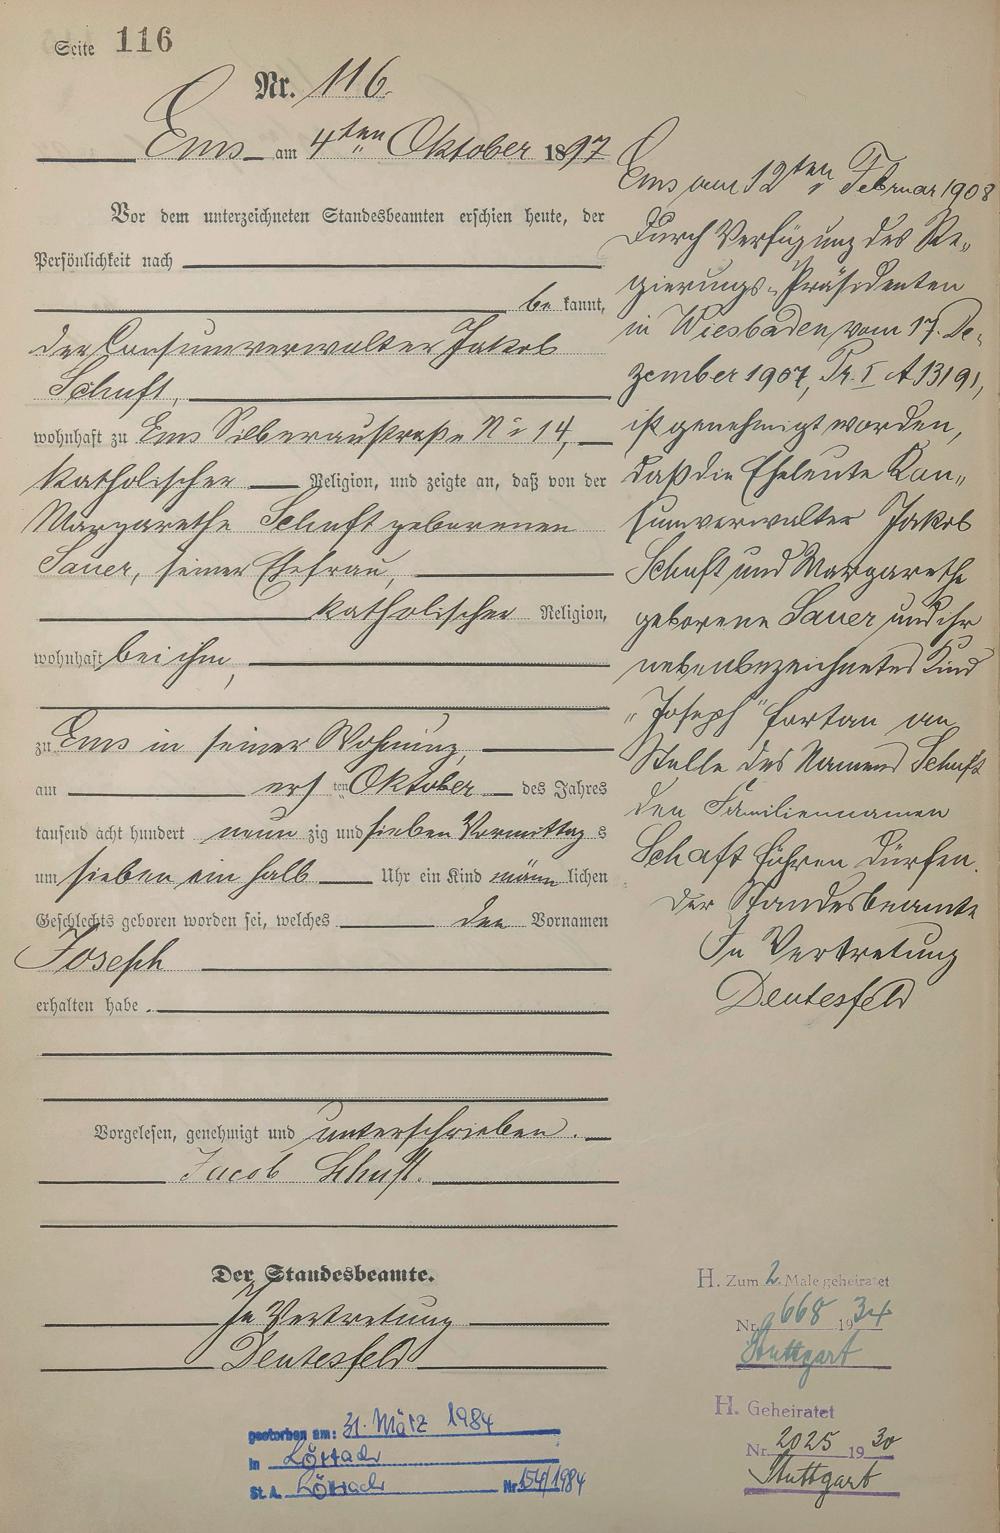 Seite 116
Nr. 116.
Ems am 4ten Oktober 1897
Vor dem unterzeichneten Standesbeamten erschien heute, der
Persönlichkeit nach
be kannt,
der Consumverwalter Jakob
Schuft,
wohnhaft zu Ems Silberaustraße No 14,
katholischer Religion, und zeigte an, daß von der
Margarethe Schuft geborenen
Sauer, seiner Ehefrau,
katholischer Religion,
wohnhaft bei ihm,
zu Ems in seiner Wohnung,
am ersten Oktober des Jahres
tausend acht hundert neun zig und sieben Vormittag s
um sieben ein halb Uhr ein Kind männ lichen
Geschlechts geboren worden sei, welches den Vornamen
Joseph
erhalten habe.
Vorgelesen, genehmigt und unterschrieben.
Jacob Schuft.
Der Standesbeamte.
In Vertretung
Deutesfeld
gestorben am: 31. März 1984
in Lörrach
St. A. Lörrach Nr. 154/1984
Ems am 12ten Februar 1908
Durch Verfügung des Re„
gierungs-Präsidenten
in Wiesbaden vom 17. De-
zember 1907, Pr. I A 13191,
ist genehmigt worden,
daß die Eheleute Kon„
sumverwalter Jakob
Schuft und Margarethe
geborene Sauer und ihr
nebenbezeichnetes Kind
„Joseph" fortan an
Stelle des Namens Schuft
den Familiennamen
Schaft führen dürfen.
Der Standesbeamte
In Vertretung
Deutesfeld
H. Zum 2. Male geheiratet
Nr. 668 1934
Stuttgart
H. Geheiratet
Nr. 2025 1930
Stuttgart